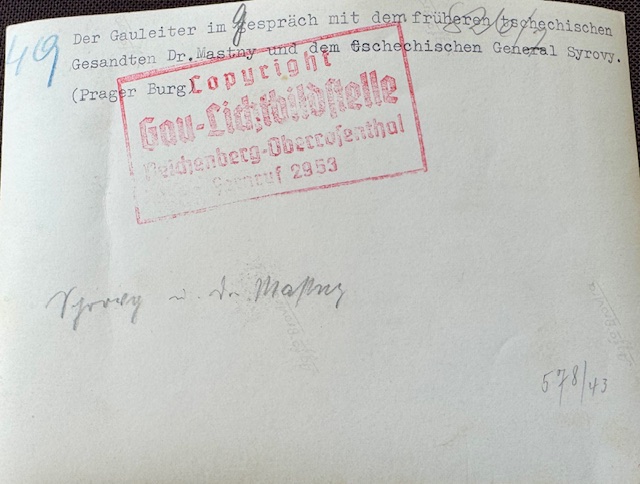 49
Der Gauleiter im gespräch mit dem früheren tschechischen
Gesandten Dr. Mastny und dem Gschechischen General Syrovy.
(Prager Burg
Copyright
Gau-Lichtbildstelle
Reichenberg-Oberrosenthal
Fernruf 2953
Syrovy u. Dr. Mastny
578/43